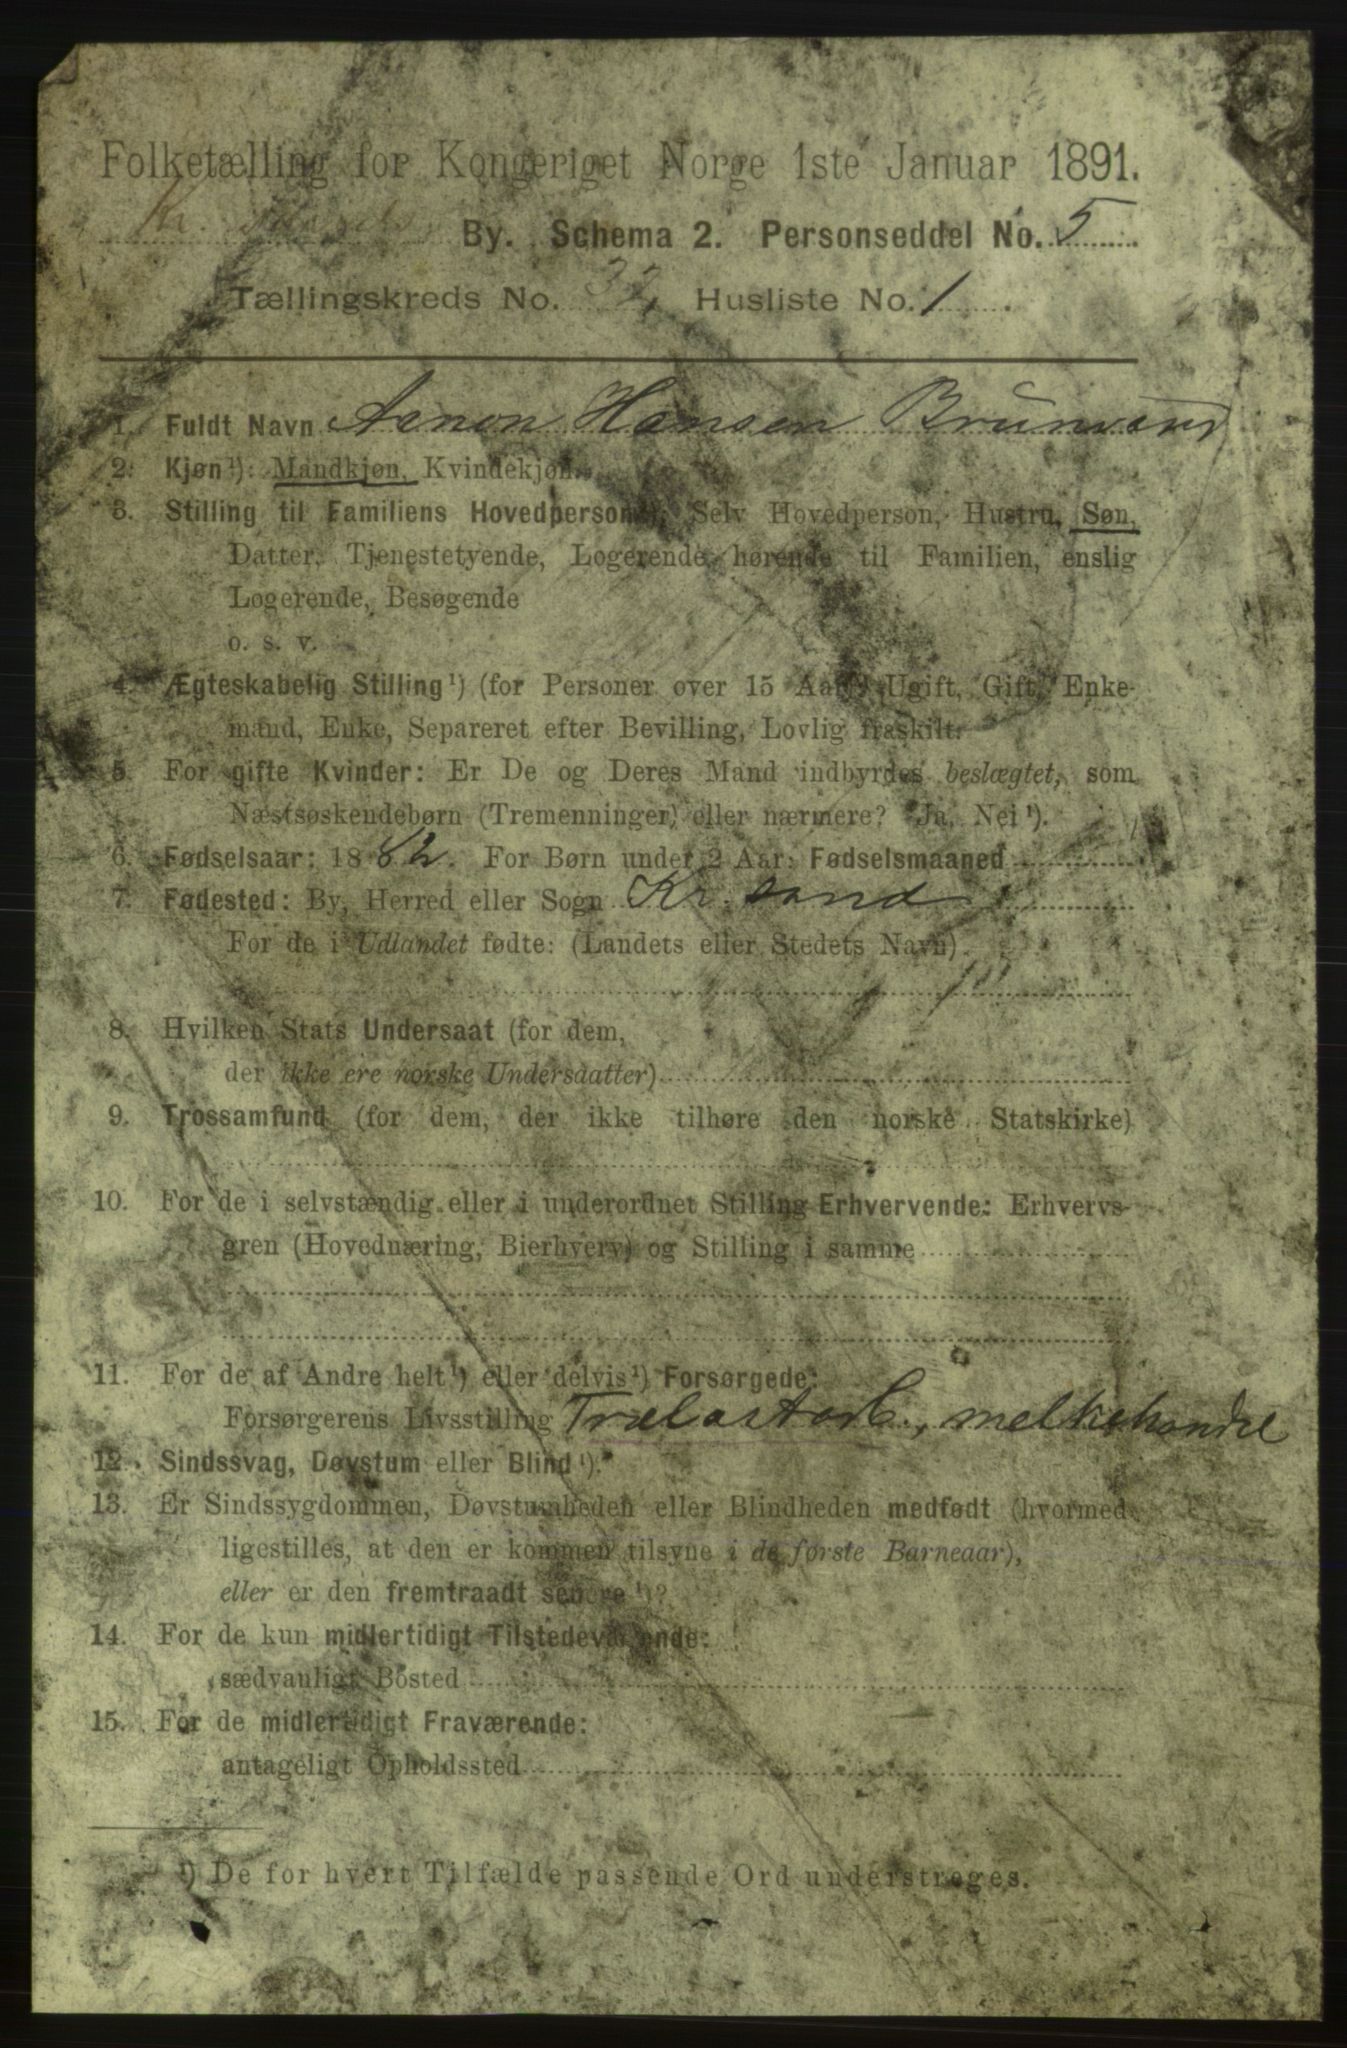 Folketælling for Kongeriget Norge 1ste Januar 1891.
Kr. By. Schema 2. Personseddel No. 5
Tællingskreds No. 32, Husliste No. 1
1. Fuldt Navn Hansen
2. Kjøn¹): Mandkjøn, Kvindekjøn.
3. Stilling til Familiens Hovedperson¹), Selv Hovedperson, Hustru, Søn,
Datter, Tjenestetyende, Logerende hørende til Familien, enslig
Logerende, Besøgende
o. s. v.
4. Ægteskabelig Stilling¹) (for Personer over 15 Aar): Ugift, Gift, Enke-
mand, Enke, Separeret efter Bevilling, Lovlig fraskilt.
5. For gifte Kvinder: Er De og Deres Mand indbyrdes beslægtet, som
Næstsøskendebørn (Tremenninger) eller nærmere? Ja, Nei¹).
6. Fødselsaar: 1882. For Børn under 2 Aar: Fødselsmaaned
7. Fødested: By, Herred eller Sogn Kr.sand
For de i Udlandet fødte: (Landets eller Stedets Navn).
8. Hvilken Stats Undersaat (for dem,
der ikke ere norske Undersaatter)
9. Trossamfund (for dem, der ikke tilhøre den norske Statskirke)
10. For de i selvstændig eller i underordnet Stilling Erhvervende: Erhvervs-
gren (Hovednæring, Bierhverv) og Stilling i samme
11. For de af Andre helt¹) eller delvis¹) Forsørgede:
Forsørgerens Livsstilling Trælastarb., melkehandel
12. Sindssvag, Døvstum eller Blind¹).
13. Er Sindssygdommen, Døvstumheden eller Blindheden medfødt (hvormed
ligestilles, at den er kommen tilsyne i de første Barneaar),
eller er den fremtraadt senere¹)?
14. For de kun midlertidigt Tilstedeværende:
sædvanligt Bosted
15. For de midlertidigt Fraværende:
antageligt Opholdssted
¹) De for hvert Tilfælde passende Ord understreges.